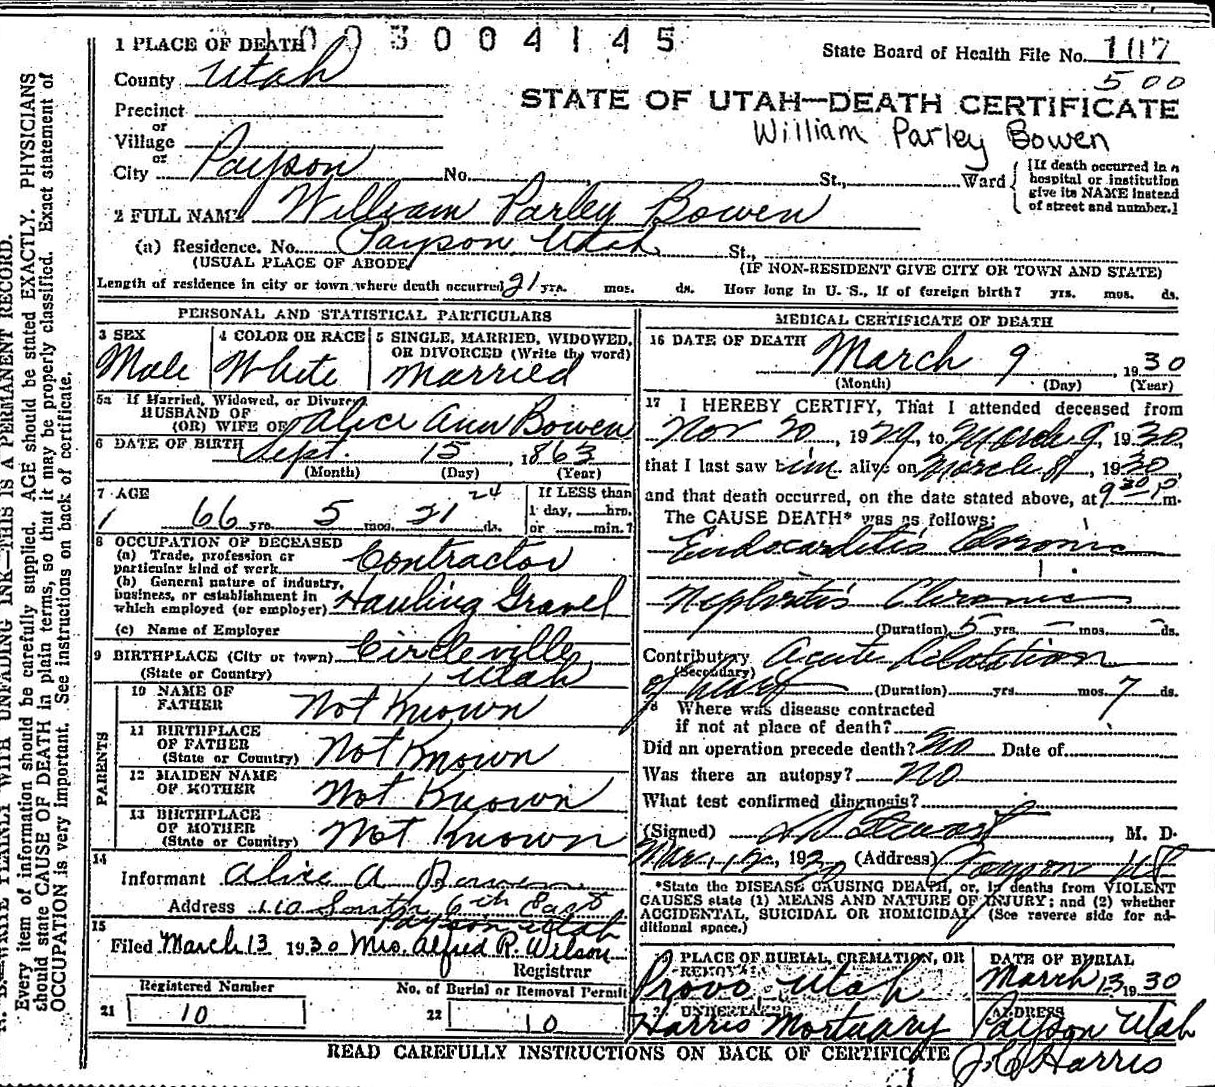 1003004145
1 PLACE OF DEATH
State Board of Health File No. 107
500
County Utah
STATE OF UTAH—DEATH CERTIFICATE
William Parley Bowen
Precinct
or
Village
or
City Payson No. St., Ward
[If death occurred in a
hospital or institution
give its NAME instead
of street and number.]
2 FULL NAME William Parley Bowen
(a) Residence. No. Payson, Utah St.,
(USUAL PLACE OF ABODE) (IF NON-RESIDENT GIVE CITY OR TOWN AND STATE)
Length of residence in city or town where death occurred 21 yrs. mos. ds. How long in U. S., if of foreign birth? yrs. mos. ds.
PERSONAL AND STATISTICAL PARTICULARS
3 SEX 4 COLOR OR RACE 5 SINGLE, MARRIED, WIDOWED,
OR DIVORCED (Write the word)
Male White Married
5a If Married, Widowed, or Divorced
HUSBAND OF
(OR) WIFE OF Alice Ann Bowen
6 DATE OF BIRTH Sept. 15, 1863
(Month) (Day) (Year)
7 AGE If LESS than
24
1 day, hrs.
66 yrs. 5 mos. 21 ds. or min.?
8 OCCUPATION OF DECEASED
(a) Trade, profession or
particular kind of work Contractor
(b) General nature of industry,
business, or establishment in
which employed (or employer) Hauling Gravel
(c) Name of Employer
9 BIRTHPLACE (City or town) Circleville
(State or Country) Utah
PARENTS
10 NAME OF
FATHER Not Known
11 BIRTHPLACE
OF FATHER
(State or Country) Not Known
12 MAIDEN NAME
OF MOTHER Not Known
13 BIRTHPLACE
OF MOTHER
(State or Country) Not Known
14
Informant Alice A Bowen
Address 110 South 6th East
Payson Utah
15
Filed March 13 1930 Mrs. Alfred R. Wilson
Registrar
Registered Number No. of Burial or Removal Permit
21 10 22 10
MEDICAL CERTIFICATE OF DEATH
16 DATE OF DEATH March 9, 1930
(Month) (Day) (Year)
17 I HEREBY CERTIFY, That I attended deceased from
Nov 20, 1929, to March 9, 1930,
that I last saw him alive on March 8, 1930,
and that death occurred, on the date stated above, at 9 30 P m.
The CAUSE DEATH* was as follows:
Endocarditis Chronic
Nephritis Chronic
(Duration) 5 yrs. — mos. — ds.
Contributory Acute dilatation
(Secondary)
of heart (Duration) yrs. mos. 7 ds.
18 Where was disease contracted
if not at place of death?
Did an operation precede death? No Date of
Was there an autopsy? No
What test confirmed diagnosis?
(Signed) Stewart, M. D.
Mar. 12, 1930 (Address) Payson Ut
*State the DISEASE CAUSING DEATH, or, in deaths from VIOLENT
CAUSES state (1) MEANS AND NATURE OF INJURY; and (2) whether
ACCIDENTAL, SUICIDAL OR HOMICIDAL. (See reverse side for ad-
ditional space.)
19 PLACE OF BURIAL, CREMATION, OR
REMOVAL
Provo Utah
DATE OF BURIAL
March 13 1930
UNDERTAKER
Harris Mortuary
ADDRESS
Payson Utah
READ CAREFULLY INSTRUCTIONS ON BACK OF CERTIFICATE
Harris
N. B.—WRITE PLAINLY WITH UNFADING INK—THIS IS A PERMANENT RECORD.
Every item of information should be carefully supplied. AGE should be stated EXACTLY. PHYSICIANS
should state CAUSE OF DEATH in plain terms, so that it may be properly classified. Exact statement of
OCCUPATION is very important. See instructions on back of certificate.